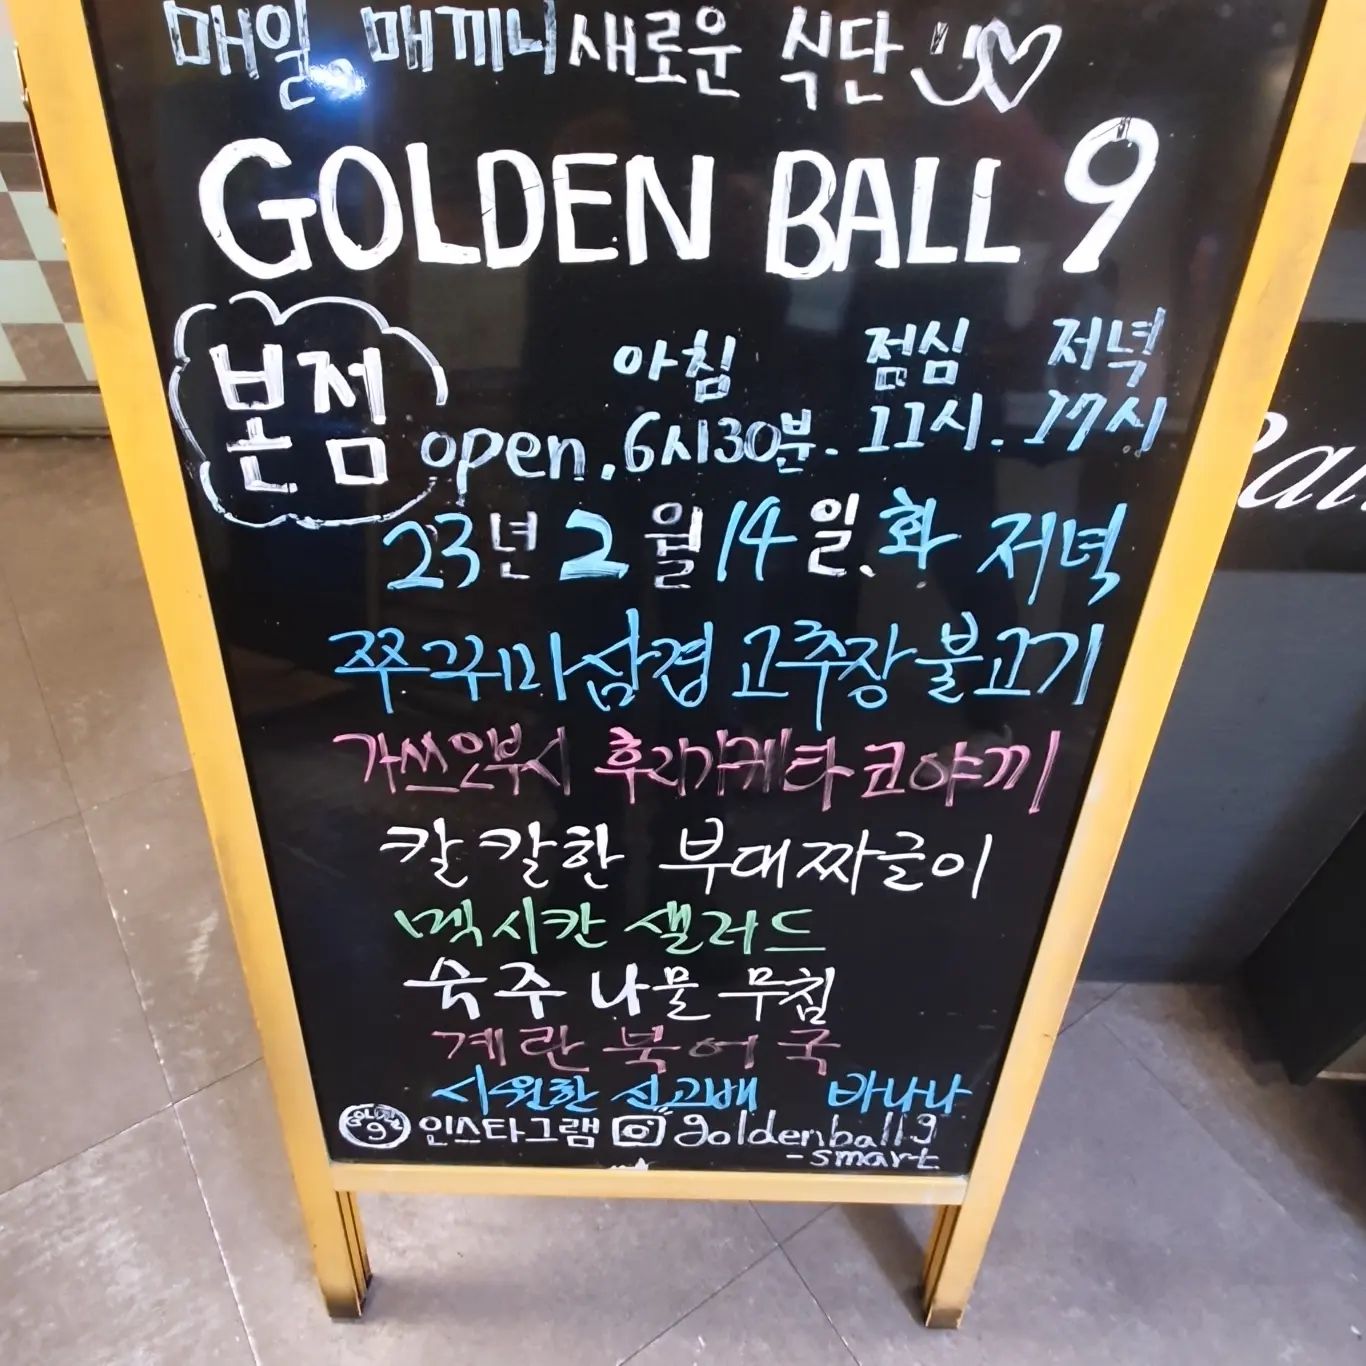 매일, 매끼니 새로운 식단
GOLDEN BALL 9
본점
아침 점심 저녁
open. 6시30분. 11시. 17시
23년 2월 14일.화 저녁
쭈꾸미삼겹 고추장 불고기
가쓰오부시 후리가케 타코야끼
칼칼한 부대짜글이
멕시칸 샐러드
숙주 나물 무침
계란 북어국
시원한 신고배 바나나
GOLDEN 9 인스타그램 goldenball9
-smart